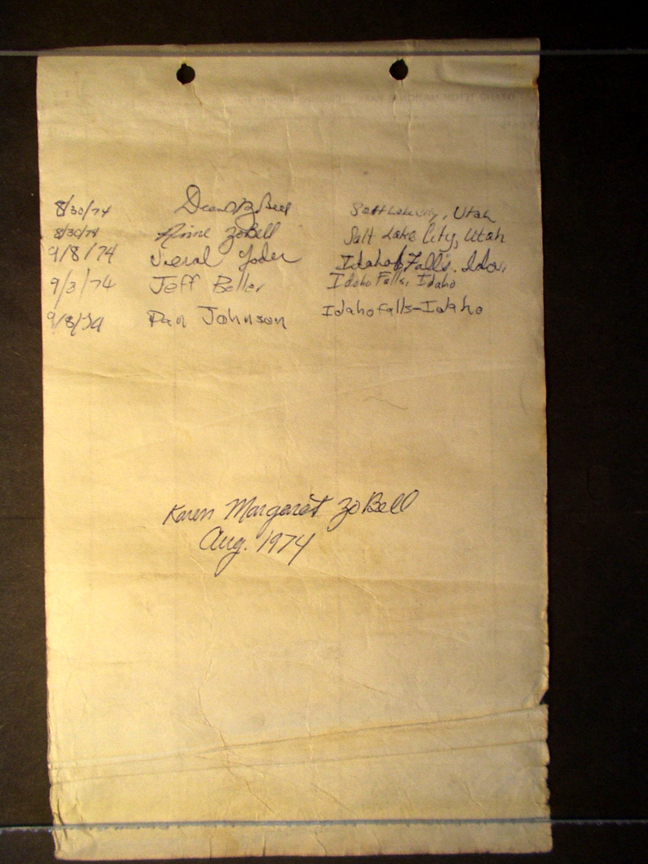 8/30/74 Dean ZoBell Salt Lake City, Utah
8/30/74 Anne ZoBell Salt Lake City, Utah
9/8/74 Yoder Idaho Falls, Ida.
9/3/74 Jeff Idaho Falls, Idaho
Dan Johnson Idaho falls-Idaho
Karen Margaret ZoBell
Aug. 1974